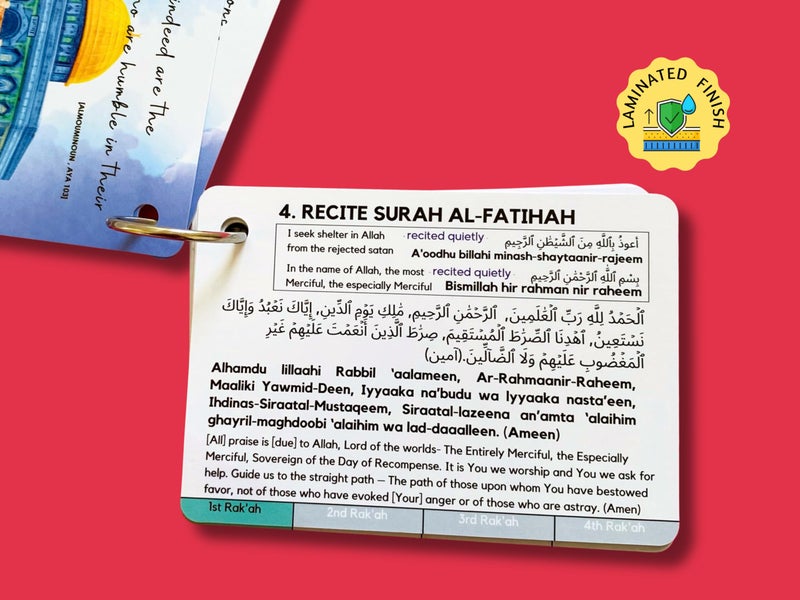 one -
indeed are the
who are humble in their
[ALMOUMINOUN , AYA 103]
LAMINATED FINISH
4. RECITE SURAH AL-FATIHAH
I seek shelter in Allah
from the rejected satan
recited quietly
أعوذُ بِٱللَّهِ مِنَ ٱلشَّيْطَٰنِ ٱلرَّجِيمِ
A'oodhu billahi minash-shaytaanir-rajeem
In the name of Allah, the most
Merciful, the especially Merciful
recited quietly
بِسْمِ ٱللَّهِ ٱلرَّحْمَٰنِ ٱلرَّحِيمِ
Bismillah hir rahman nir raheem
ٱلْحَمْدُ لِلَّهِ رَبِّ ٱلْعَٰلَمِينَ, ٱلرَّحْمَٰنِ ٱلرَّحِيمِ, مَٰلِكِ يَوْمِ ٱلدِّينِ, إِيَّاكَ نَعْبُدُ وَإِيَّاكَ
نَسْتَعِينُ, ٱهْدِنَا ٱلصِّرَٰطَ ٱلْمُسْتَقِيمَ, صِرَٰطَ ٱلَّذِينَ أَنْعَمْتَ عَلَيْهِمْ غَيْرِ
ٱلْمَغْضُوبِ عَلَيْهِمْ وَلَا ٱلضَّآلِّينَ.(آمين)
Alhamdu lillaahi Rabbil 'aalameen, Ar-Rahmaanir-Raheem,
Maaliki Yawmid-Deen, Iyyaaka na'budu wa Iyyaaka nasta'een,
Ihdinas-Siraatal-Mustaqeem, Siraatal-lazeena an'amta 'alaihim
ghayril-maghdoobi 'alaihim wa lad-daaalleen. (Ameen)
[All] praise is [due] to Allah, Lord of the worlds- The Entirely Merciful, the Especially
Merciful, Sovereign of the Day of Recompense. It is You we worship and You we ask for
help. Guide us to the straight path – The path of those upon whom You have bestowed
favor, not of those who have evoked [Your] anger or of those who are astray. (Amen)
1st Rak'ah
2nd Rak'ah
3rd Rak'ah
4th Rak'ah